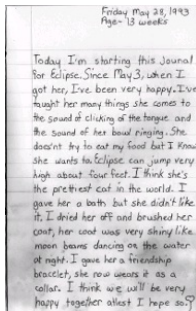 Friday May 28, 1993
Age- 13 weeks
Today I'm starting this Journal
for Eclipse. Since May 3, when I
got her, I've been very happy. I've
taught her many things she comes to
the sound of clicking of the tongue and
the sound of her bowl ringing. She
doesnt try to eat my food but I know
she wants to. Eclipse can jump very
high about four feet. I think she's
the prettiest cat in the world. I
gave her a bath but she didn't like
it. I dried her off and brushed her
coat, her coat was very shiny like
moon beams dancing on the water
at night. I gave her a friendship
bracelet, she now wears it as a
collar. I think we will be very
happy together atlest I hope so!?